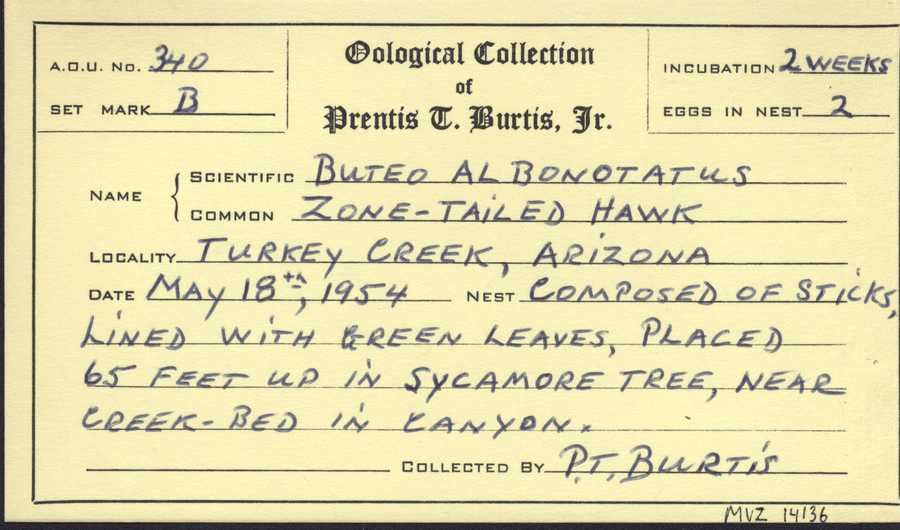 A.O.U. No. 340
SET MARK B
Oological Collection
of
Prentis T. Burtis, Jr.
INCUBATION 2 WEEKS
EGGS IN NEST 2
NAME
SCIENTIFIC BUTEO ALBONOTATUS
COMMON ZONE-TAILED HAWK
LOCALITY TURKEY CREEK, ARIZONA
DATE MAY 18th, 1954 NEST COMPOSED OF STICKS,
LINED WITH GREEN LEAVES, PLACED
65 FEET UP IN SYCAMORE TREE, NEAR
CREEK-BED IN CANYON.
COLLECTED BY P.T. BURTIS
MVZ 14136